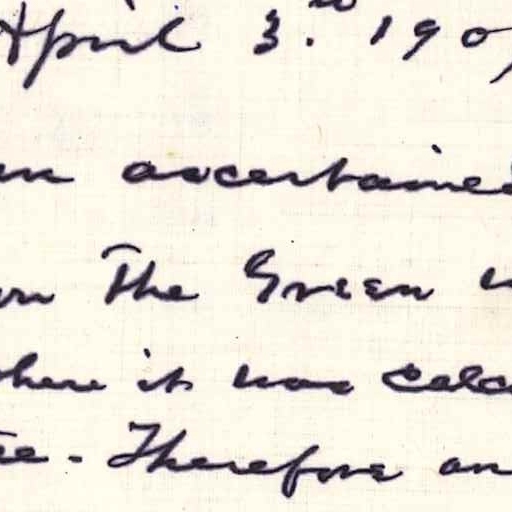 April 3.rd 190
en ascertained
on The Green w
where it was calc
ee - Therefore an